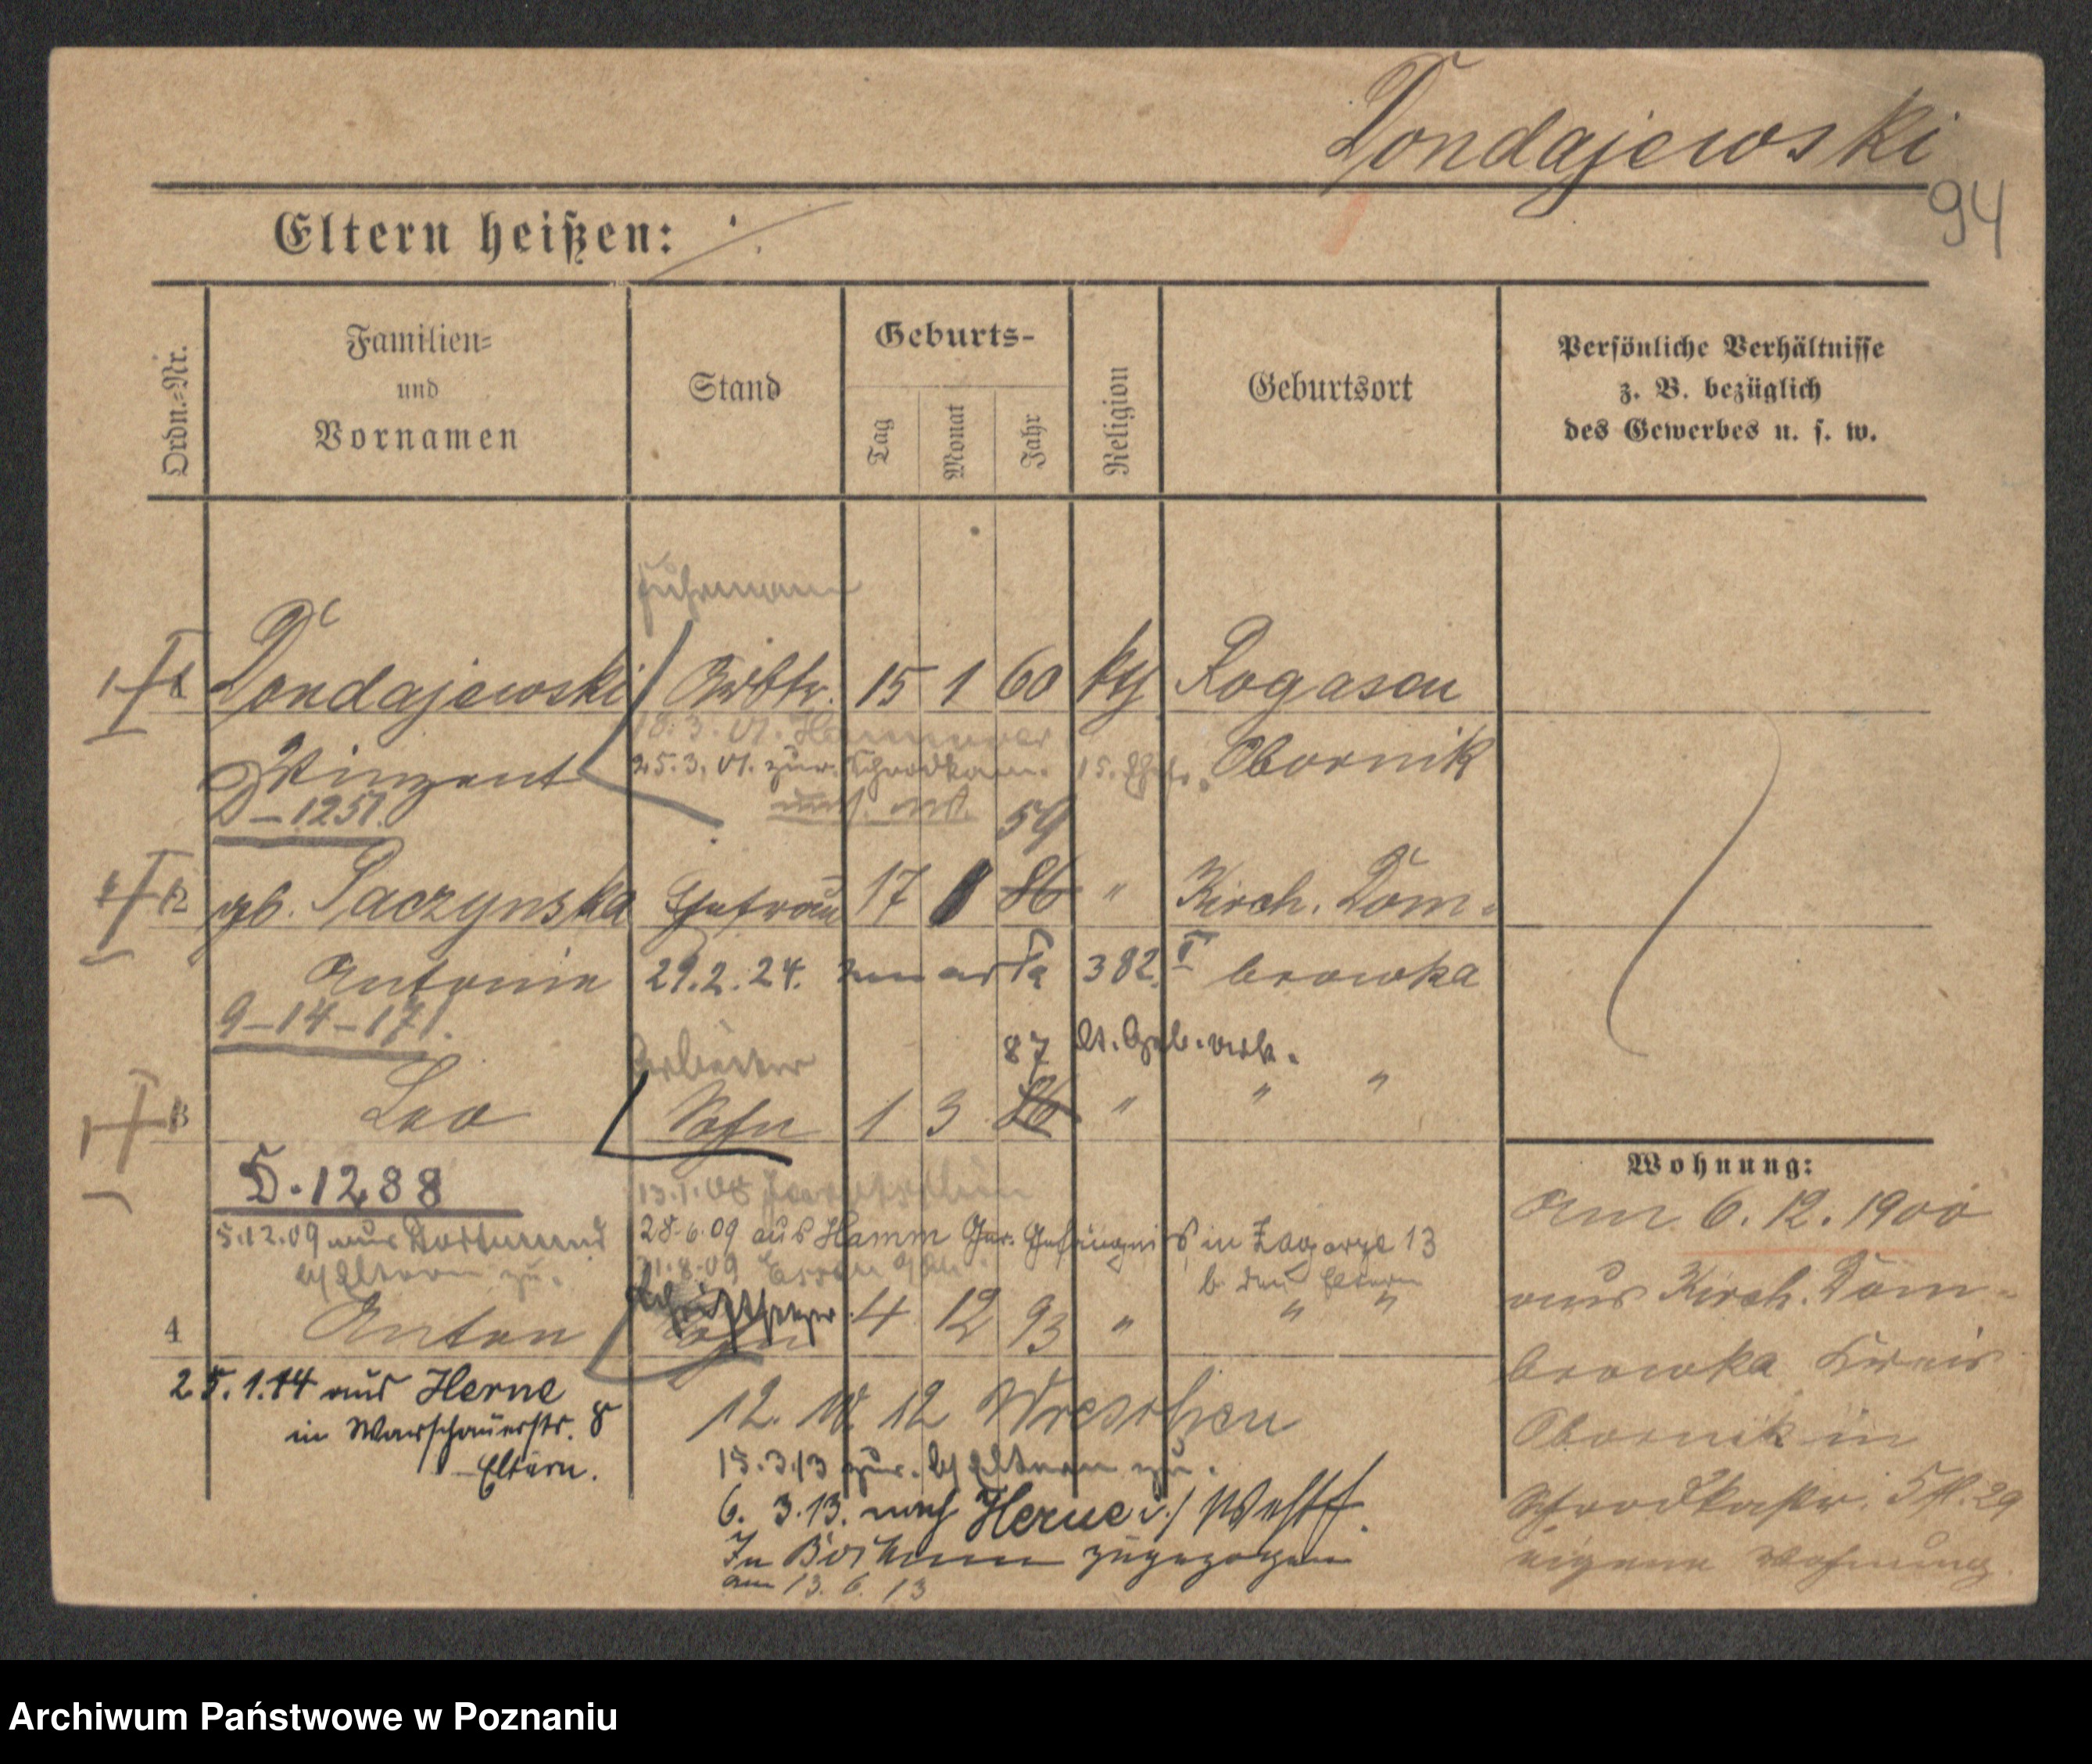 Dondajewski
94
Eltern heißen: ·/.
Ordn.=Nr.
Familien=
und
Vornamen
Stand
Geburts-
Tag
Monat
Jahr
Religion
Geburtsort
Persönliche Verhältnisse
z. B. bezüglich
des Gewerbes u. s. w.
Fuhrmann
1 Dondajewski Arbtr. 15 1 60 kth Rogasen
18.3.01. Hannover
Vinzent 25.3.01. zur. Obornik
D-1251.
59
2 gb. Paczynska Ehefrau 17 86 " Kirch. Dom-
Antonie 29.2.24. 382 I browka
9-14-171.
Arbeiter 87 lt. Geb. urk.
3 Leo Sohn 1 3 86 " " "
D. 1288
13.1.08
5.12.09 aus Dortmund 28.6.09 aus Hamm Ger. Gefängnis in Zagorze 13
b/Eltern zu. 31.8.09 Essen b. den Eltern
Schriftsetzer
4 Anton Sohn 4 12 93 " " "
25.1.14 aus Herne
in Warschauerstr. 8
Eltern.
12. 10. 12 Wreschen
15.3.13 zur. b/Eltern zu.
6. 3.13. nach Herne i/Westf.
In Bochum zugezogen
am 13. 6. 13
Wohnung:
Am 6. 12. 1900
aus Kirch. Dom-
browka Kreis
Obornik in
Schrodkastr. 29
eigene Wohnung.
Archiwum Państwowe w Poznaniu